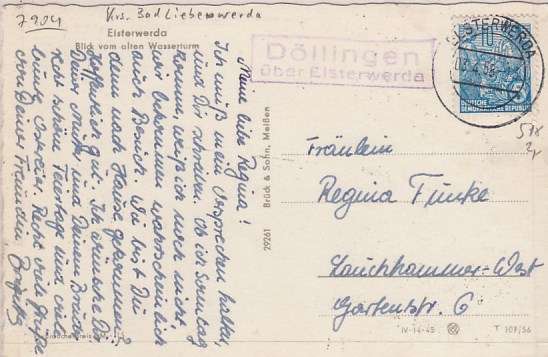 7904
Krs. Bad Liebenwerda
Elsterwerda
Blick vom alten Wasserturm
Meine liebe Regina!
Ich muß mein Versprechen halten,
und Dir schreiben. Ob ich Sonntag
komme, weiß ich noch nicht
wir bekommen wahrscheinlich
auch Besuch. Wie bist Du
denn nach Hause gekommen?
Hoffentlich gut. Ich wünsche Dir
Deiner Mutter und Deinem Bruder
recht schöne Feiertage und viele
bunte Ostereier. Recht viele Grüße
von Deiner Freundin
Brück & Sohn, Meißen
29261
Döllingen
über Elsterwerda
ELSTERWERDA
10
DEUTSCHE
DEMOKRATISCHE REPUBLIK
Fräulein
Regina Funke
Lauchhammer-West
Gartenstr. 6
IV-14-45
T 107/56